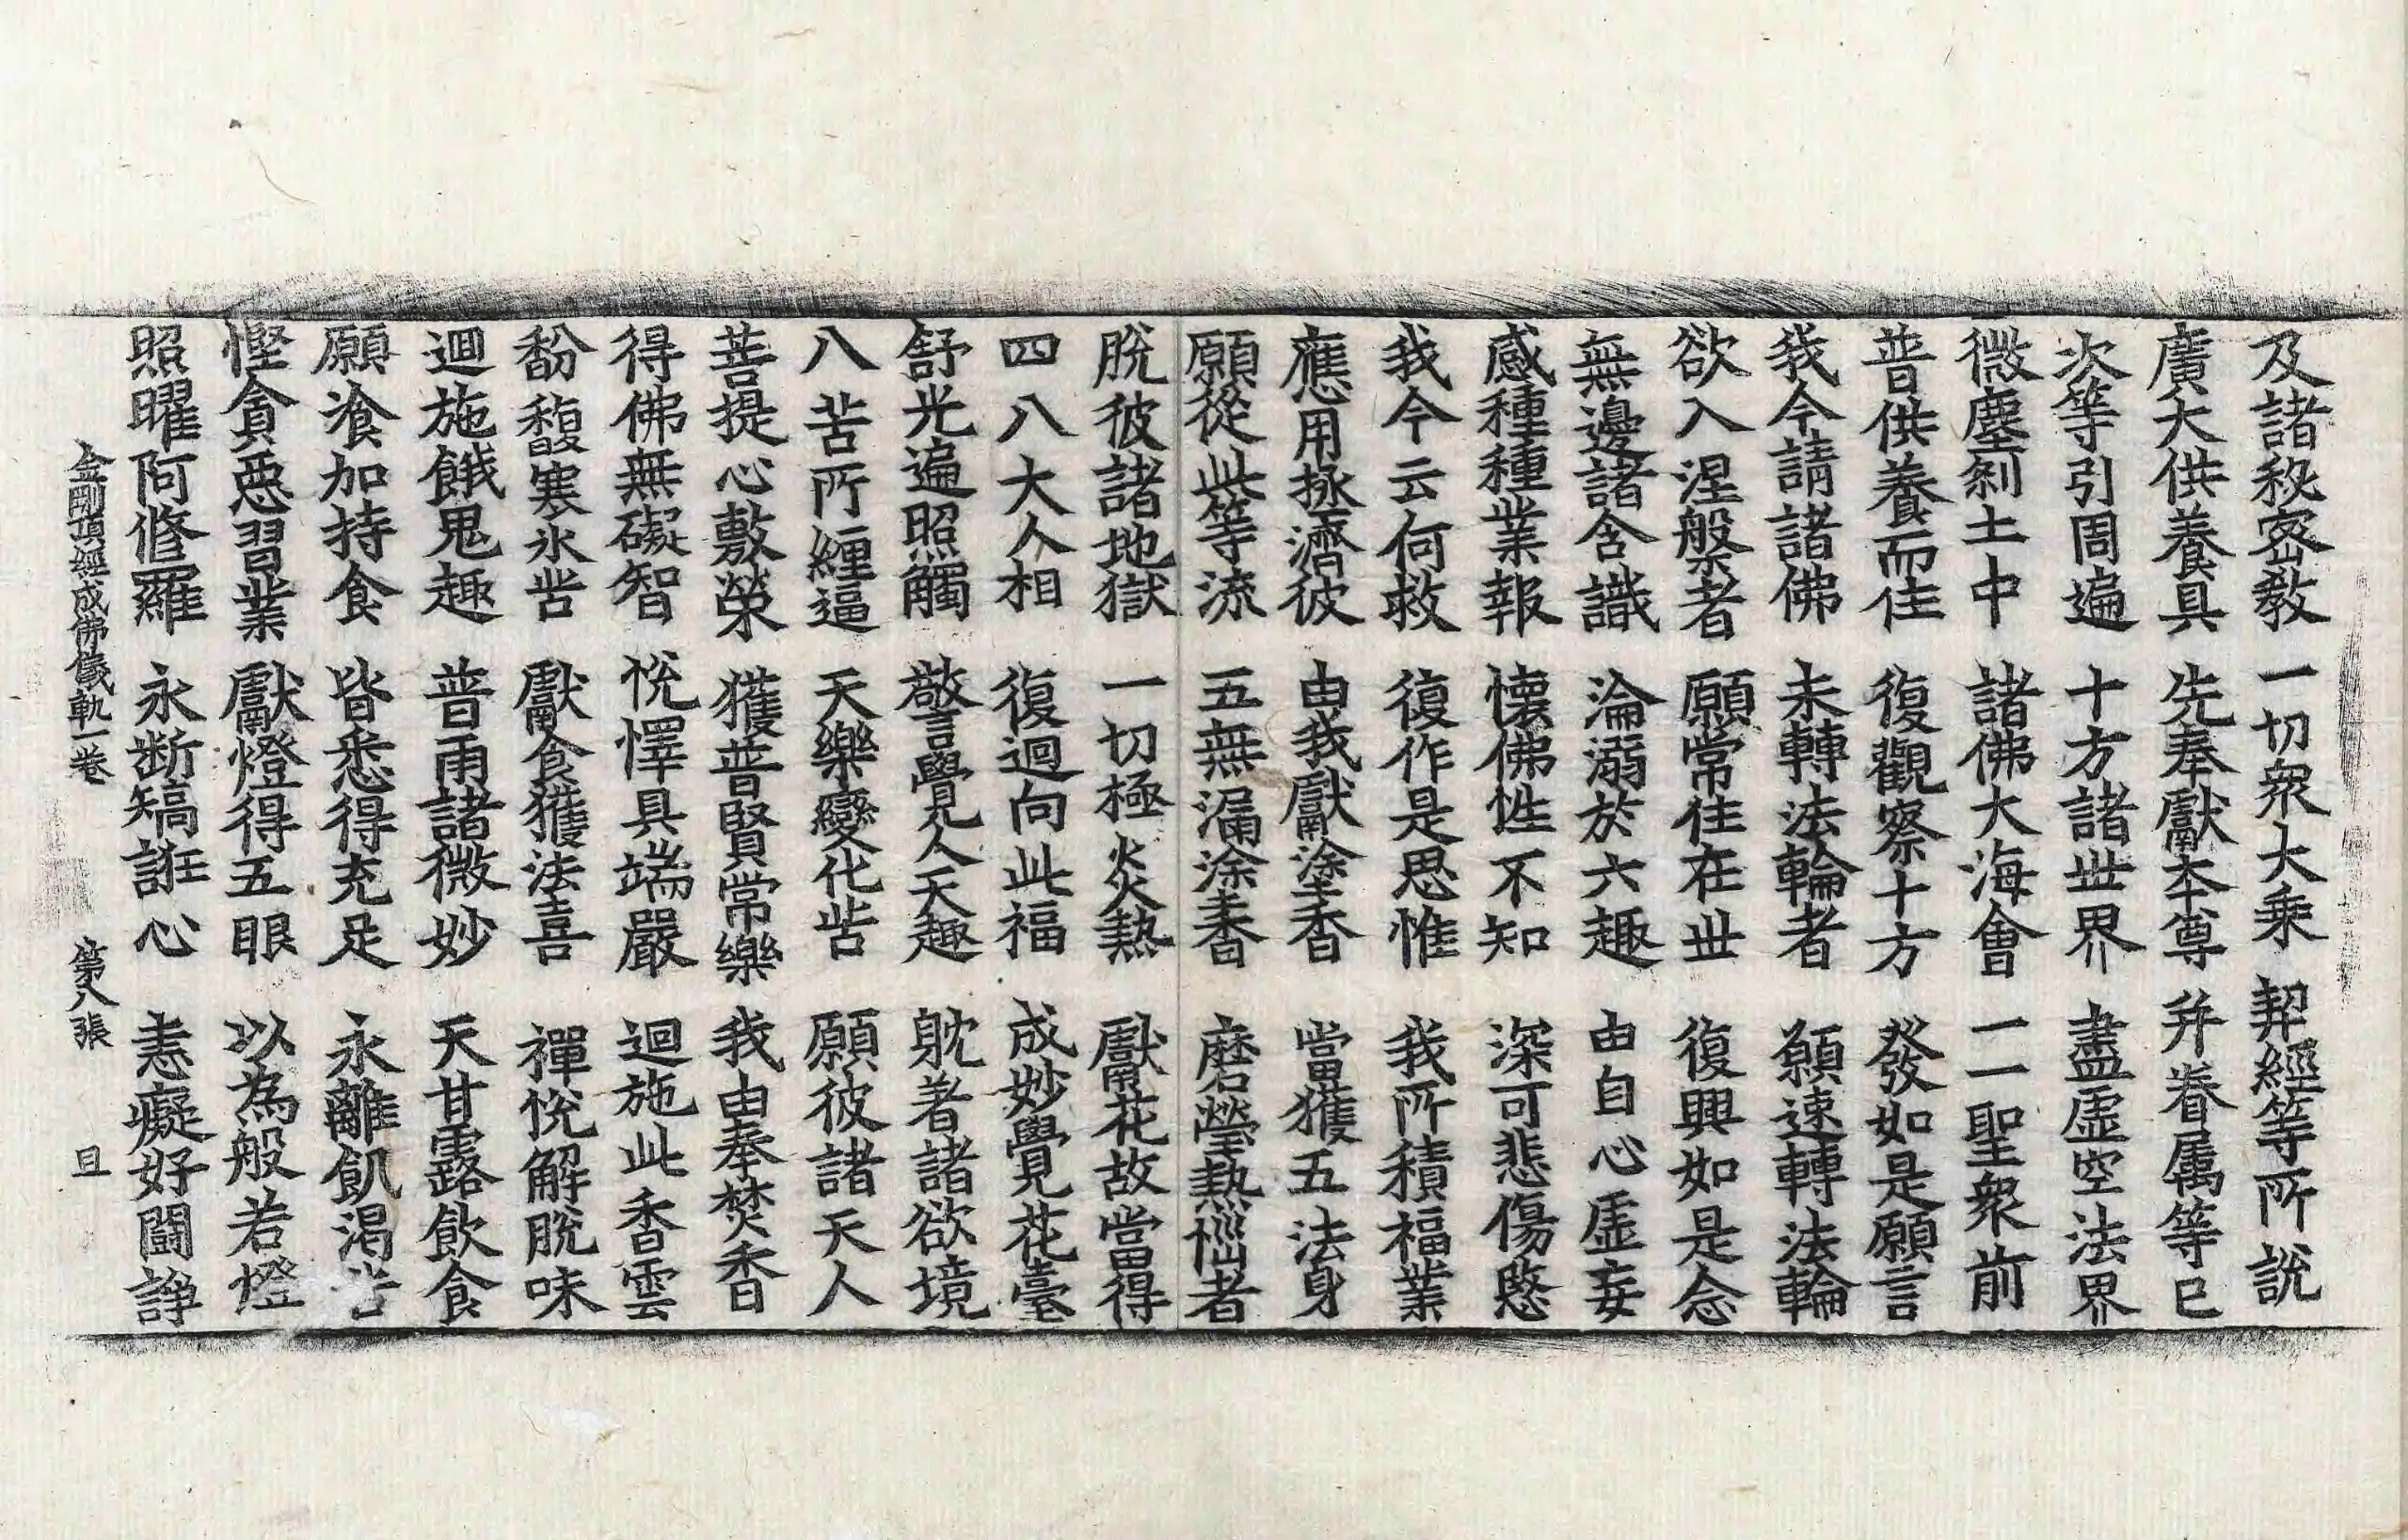 及諸秘密教 一切衆大乘 契經等所說
廣大供養具 先奉獻本尊 并眷属等已
次等引周遍 十方諸世界 盡虛空法界
微塵刹土中 諸佛大海會 一一聖衆前
普供養而住 復觀察十方 發如是願言
我今請諸佛 未轉法輪者 願速轉法輪
欲入涅槃者 願常住在世 復興如是念
無邊諸含識 淪溺於六趣 由自心虛妄
感種種業報 懷佛性不知 深可悲傷愍
我今云何救 復作是思惟 我所積福業
應用拯濟彼 由我獻塗香 當獲五法身
願從此等流 五無漏塗香 磨瑩熱惱者
脫彼諸地獄 一切極炎熱 獻花故當得
四八大人相 復迴向此福 成妙覺花臺
舒光遍照觸 警覺人天趣 躭著諸欲境
八苦所纏逼 天樂變化苦 願彼諸天人
菩提心敷榮 獲普賢常樂 我由奉焚香
得佛無礙智 悅懌具端嚴 迴施此香雲
馚馥寒氷苦 獻食獲法喜 禪悅解脫味
迴施餓鬼趣 普雨諸微妙 天甘露飲食
願飡加持食 皆悉得充足 永離飢渴苦
慳貪惡習業 獻燈得五眼 以為般若燈
照曜阿修羅 永斷矯誑心 恚癡好鬪諍
金剛頂經成佛儀軌一卷 第八張 且